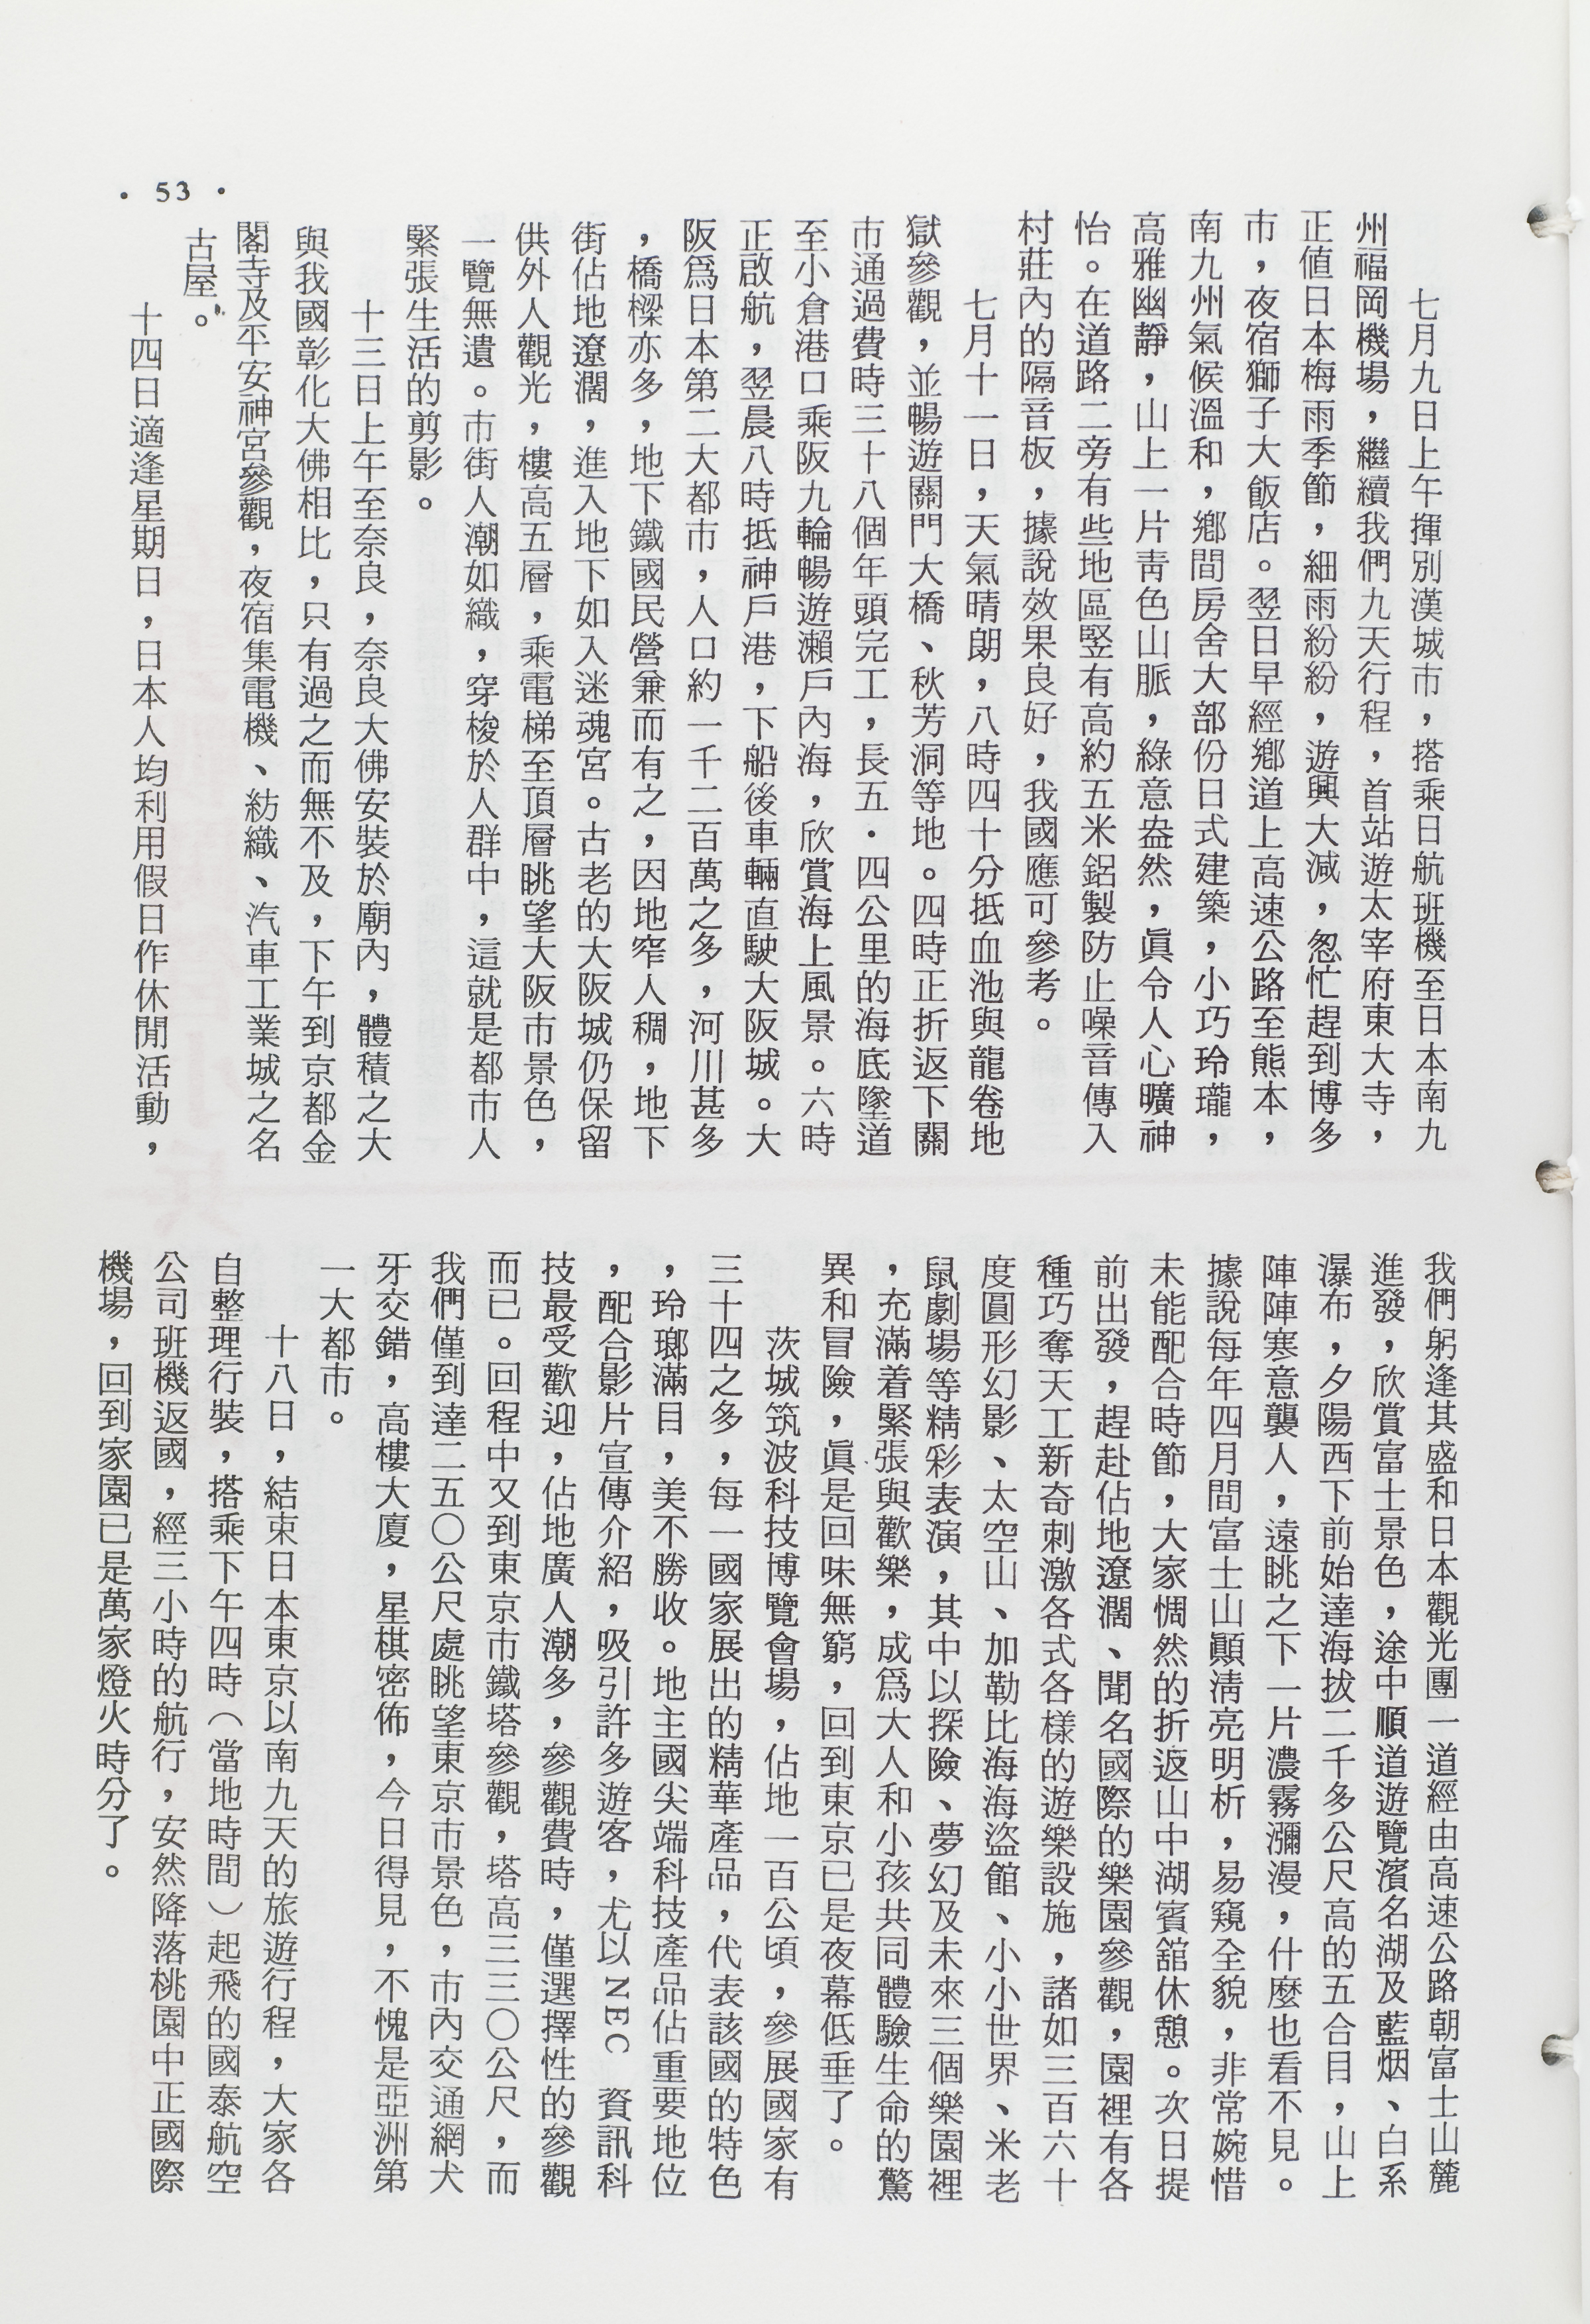 七月九日上午揮別漢城市，搭乘日航班機至日本南九
州福岡機場，繼續我們九天行程，首站遊太宰府東大寺，
正值日本梅雨季節，細雨紛紛，遊興大減，怱忙趕到博多
市，夜宿獅子大飯店。翌日早經鄉道上高速公路至熊本，
南九州氣候溫和，鄉間房舍大部份日式建築，小巧玲瓏，
高雅幽靜，山上一片青色山脈，綠意盎然，眞令人心曠神
怡。在道路二旁有些地區竪有高約五米鋁製防止噪音傳入
村莊內的隔音板，據說效果良好，我國應可參考。
七月十一日，天氣晴朗，八時四十分抵血池與龍卷地
獄參觀，並暢遊關門大橋、秋芳洞等地。四時正折返下關
市通過費時三十八個年頭完工，長五．四公里的海底墜道
至小倉港口乘阪九輪暢遊瀨戶內海，欣賞海上風景。六時
正啟航，翌晨八時抵神戶港，下船後車輛直駛大阪城。大
阪爲日本第二大都市，人口約一千二百萬之多，河川甚多
，橋樑亦多，地下鐵國民營兼而有之，因地窄人稠，地下
街佔地遼濶，進入地下如入迷魂宮。古老的大阪城仍保留
供外人觀光，樓高五層，乘電梯至頂層眺望大阪市景色，
一覽無遺。市街人潮如織，穿梭於人群中，這就是都市人
緊張生活的剪影。
十三日上午至奈良，奈良大佛安裝於廟內，體積之大
與我國彰化大佛相比，只有過之而無不及，下午到京都金
閣寺及平安神宮參觀，夜宿集電機、紡織、汽車工業城之名
古屋。
十四日適逢星期日，日本人均利用假日作休閒活動，
我們躬逢其盛和日本觀光團一道經由高速公路朝富士山麓
進發，欣賞富士景色，途中順道遊覽濱名湖及藍烟、白系
瀑布，夕陽西下前始達海拔二千多公尺高的五合目，山上
陣陣寒意襲人，遠眺之下一片濃霧瀰漫，什麼也看不見。
據說每年四月間富士山顚淸亮明析，易窺全貌，非常婉惜
未能配合時節，大家惆然的折返山中湖賓舘休憩。次日提
前出發，趕赴佔地遼濶、聞名國際的樂園參觀，園裡有各
種巧奪天工新奇刺激各式各樣的遊樂設施，諸如三百六十
度圓形幻影、太空山、加勒比海海盜館、小小世界、米老
鼠劇場等精彩表演，其中以探險、夢幻及未來三個樂園裡
，充滿着緊張與歡樂，成爲大人和小孩共同體驗生命的驚
異和冒險，眞是回味無窮，回到東京已是夜幕低垂了。
茨城筑波科技博覽會場，佔地一百公頃，參展國家有
三十四之多，每一國家展出的精華產品，代表該國的特色
，玲瑯滿目，美不勝收。地主國尖端科技產品佔重要地位
，配合影片宣傳介紹，吸引許多遊客，尤以NEC 資訊科
技最受歡迎，佔地廣人潮多，參觀費時，僅選擇性的參觀
而已。回程中又到東京市鐵塔參觀，塔高三三〇公尺，而
我們僅到達二五〇公尺處眺望東京市景色，市內交通網犬
牙交錯，高樓大廈，星棋密佈，今日得見，不愧是亞洲第
一大都市。
十八日，結束日本東京以南九天的旅遊行程，大家各
自整理行裝，搭乘下午四時（當地時間）起飛的國泰航空
公司班機返國，經三小時的航行，安然降落桃園中正國際
機場，回到家園已是萬家燈火時分了。
· 53 ·